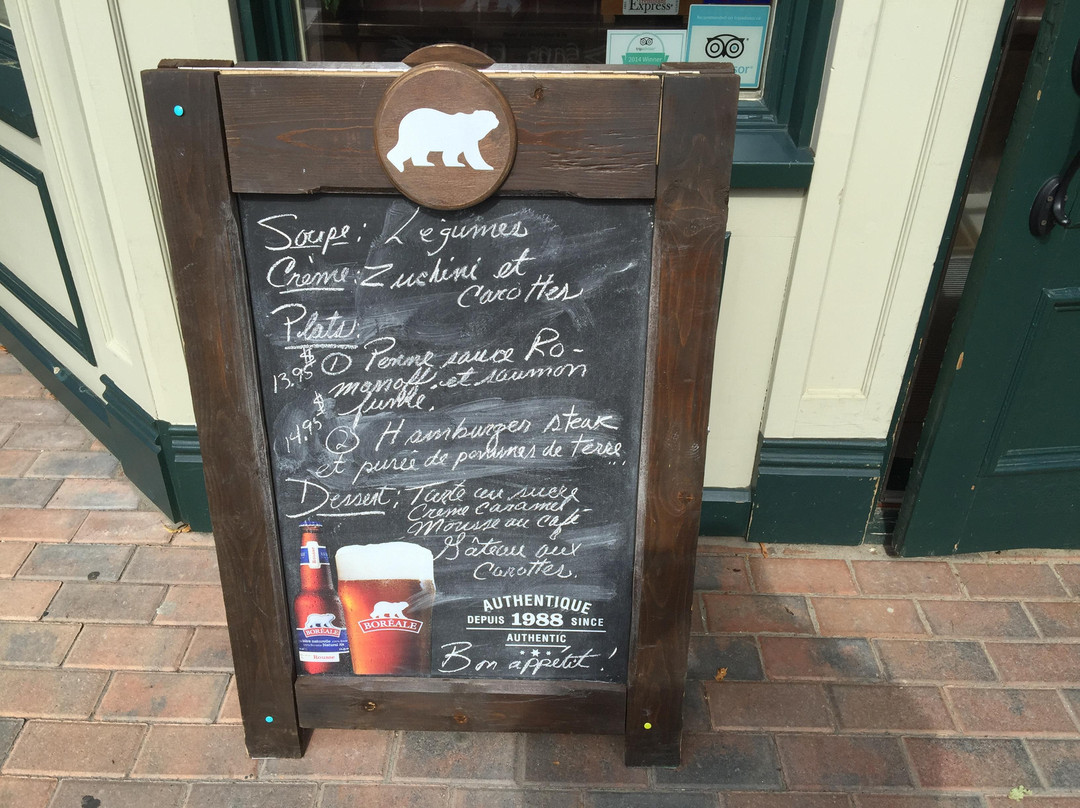 Express
2014 Winner
Soupe: Légumes
Crème: Zuchini et
Carottes
Plats:
$ 13.95 ① Penne sauce Ro-
manoff et saumon
fumé.
$ 14.95 ② Hamburger steak
et purée de pommes de terre...
Dessert: Tarte au sucre
Crème caramel
Mousse au café
Gâteau aux
Carottes.
BORÉALE
BORÉALE
Rousse
AUTHENTIQUE
DEPUIS 1988 SINCE
AUTHENTIC
Bon appétit!